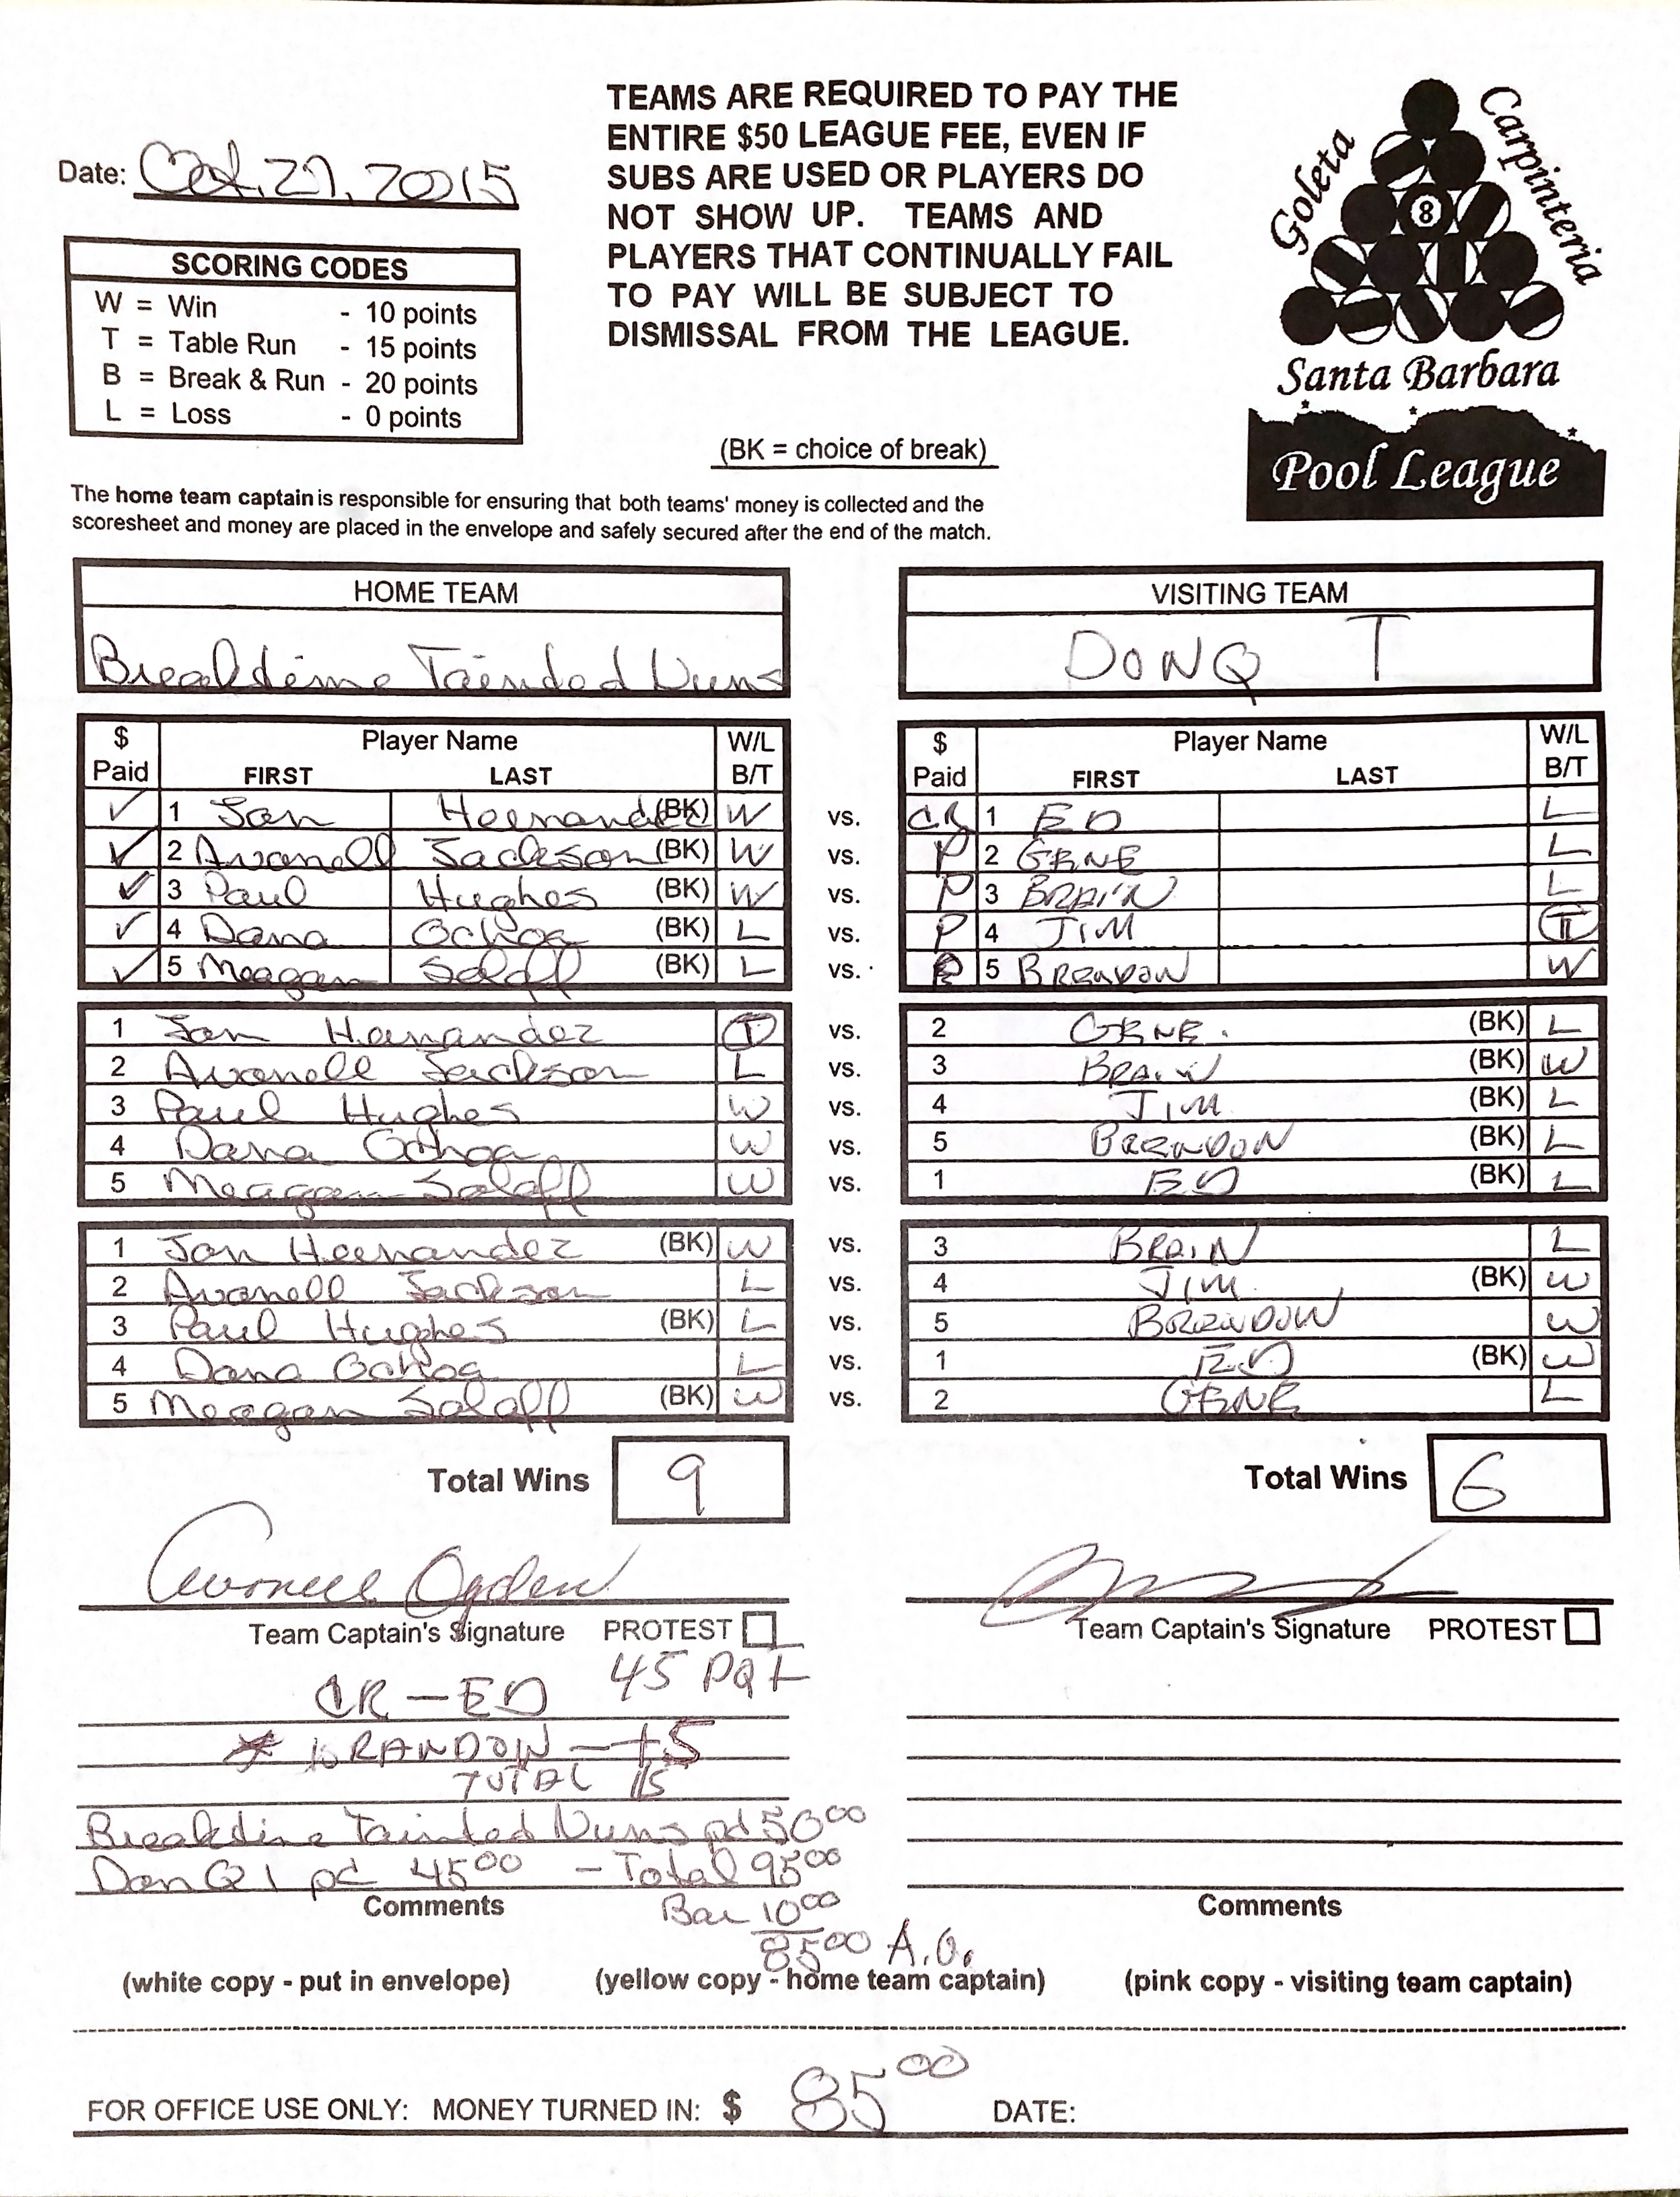 TEAMS ARE REQUIRED TO PAY THE
ENTIRE $50 LEAGUE FEE, EVEN IF
SUBS ARE USED OR PLAYERS DO
NOT SHOW UP. TEAMS AND
PLAYERS THAT CONTINUALLY FAIL
TO PAY WILL BE SUBJECT TO
DISMISSAL FROM THE LEAGUE.
Goleta
Carpinteria
8
Santa Barbara
Pool League
Date: Oct. 27, 2015
SCORING CODES
W = Win - 10 points
T = Table Run - 15 points
B = Break & Run - 20 points
L = Loss - 0 points
(BK = choice of break)
The home team captain is responsible for ensuring that both teams' money is collected and the
scoresheet and money are placed in the envelope and safely secured after the end of the match.
HOME TEAM VISITING TEAM
Tainted Nuns DONQ
$ Paid Player Name FIRST LAST W/L B/T $ Paid Player Name FIRST LAST W/L B/T
✓ 1 Jon Hernandez (BK) W vs. CR 1 ED L
✓ 2 Avonell Jackson (BK) W vs. P 2 GENE L
✓ 3 Paul Hughes (BK) W vs. P 3 BRAIN L
✓ 4 Dana Ochoa (BK) L vs. P 4 JIM T
✓ 5 Meagan Solaff (BK) L vs. 5 BRENDON W
1 Jon Hernandez T vs. 2 GENE. (BK) L
2 Avonell Jackson L vs. 3 BRAIN (BK) W
3 Paul Hughes W vs. 4 JIM (BK) L
4 Dana Ochoa W vs. 5 BRENDON (BK) L
5 Meagan Solaff W vs. 1 ED (BK) L
1 Jon Hernandez (BK) W vs. 3 BRAIN L
2 Avonell Jackson L vs. 4 JIM (BK) W
3 Paul Hughes (BK) L vs. 5 BRENDON W
4 Dana Ochoa L vs. 1 ED (BK) W
5 Meagan Solaff (BK) W vs. 2 GENE L
Total Wins 9 Total Wins 6
Avonell Ogden
Team Captain's Signature PROTEST Team Captain's Signature PROTEST
45
CR - ED
* BRANDON - +5
TOTAL
Tainted Nuns pd 50.00
Don Q pd 45.00 - Total 95.00
Comments Comments
Bar 10.00
85.00 A.O.
(white copy - put in envelope) (yellow copy - home team captain) (pink copy - visiting team captain)
FOR OFFICE USE ONLY: MONEY TURNED IN: $ 85.00 DATE: